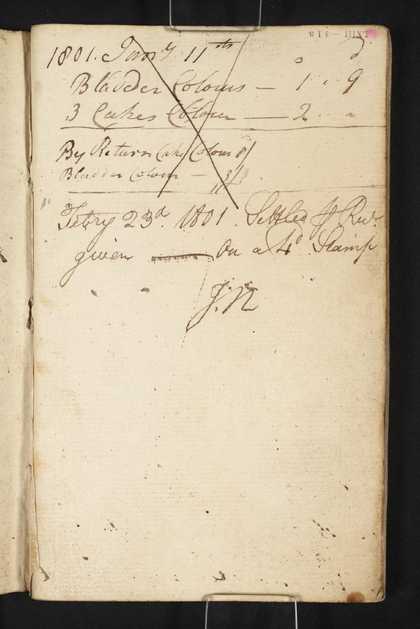 1801. Janry 11th d
Bladder Colours — 1 .. 9
3 Cakes Colour — 2 .. "
By Return Cake Colours
Bladder Colour —
Febry 23d. 1801. Settled
given on a 4d Stamp
J.R